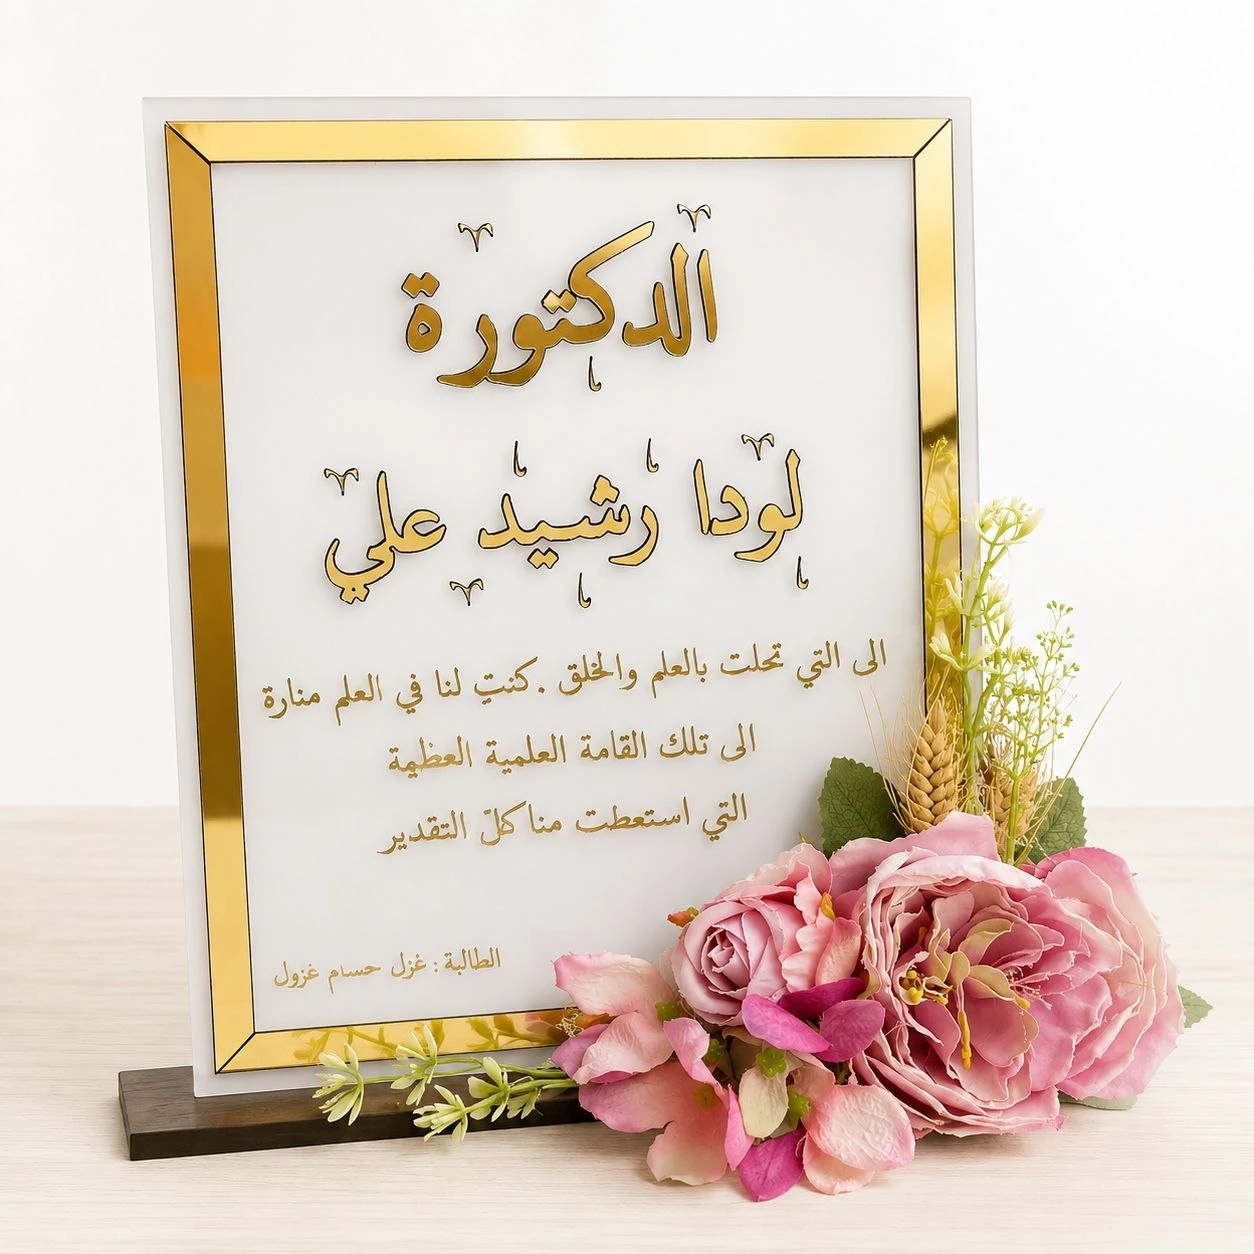 الدكتورة
لودا رشيد علي
الى التي تحلت بالعلم والخلق .كنتِ لنا في العلم منارة
الى تلك القامة العلمية العظيمة
التي استعطت منا كلّ التقدير
الطالبة : غزل حسام غزول